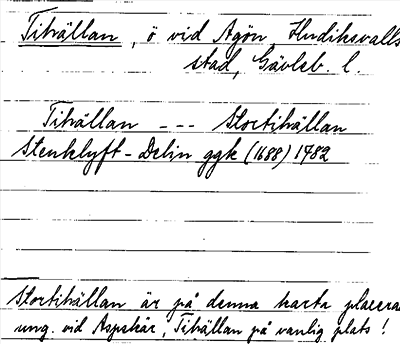 Tihällan, ö vid Agön, Hudiksvalls
stad, Gävleb. l.
Tihällan --- Stortihällan
Stenklyft-Delin ggk (1688) 1782
Stortihällan är på denna karta placera
ung. vid Aspskär, Tihällan på vanlig plats!